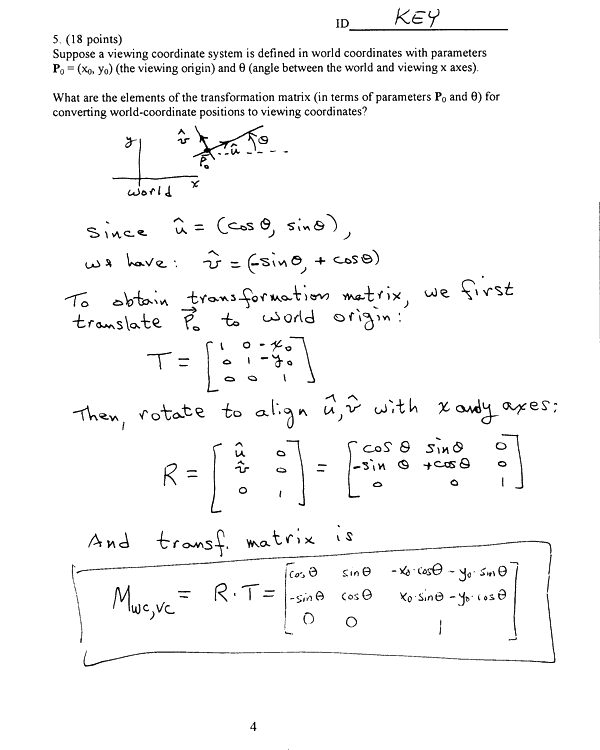 ID KEY
5. (18 points)
Suppose a viewing coordinate system is defined in world coordinates with parameters
P₀ = (x₀, y₀) (the viewing origin) and θ (angle between the world and viewing x axes).
What are the elements of the transformation matrix (in terms of parameters P₀ and θ) for
converting world-coordinate positions to viewing coordinates?
y v̂ P₀ û θ
x
world
since û = (cos θ, sin θ),
we have: v̂ = (-sin θ, + cos θ)
To obtain transformation matrix, we first
translate P₀ to world origin:
T = [1 0 -x₀
0 1 -y₀
0 0 1]
Then, rotate to align û, v̂ with x and y axes:
R = [û 0
v̂ 0
0 1] = [cos θ sin θ 0
-sin θ +cos θ 0
0 0 1]
And transf. matrix is
M wc,vc = R·T = [cos θ sin θ -x₀·cos θ - y₀·sin θ
-sin θ cos θ x₀·sin θ - y₀·cos θ
0 0 1]
4